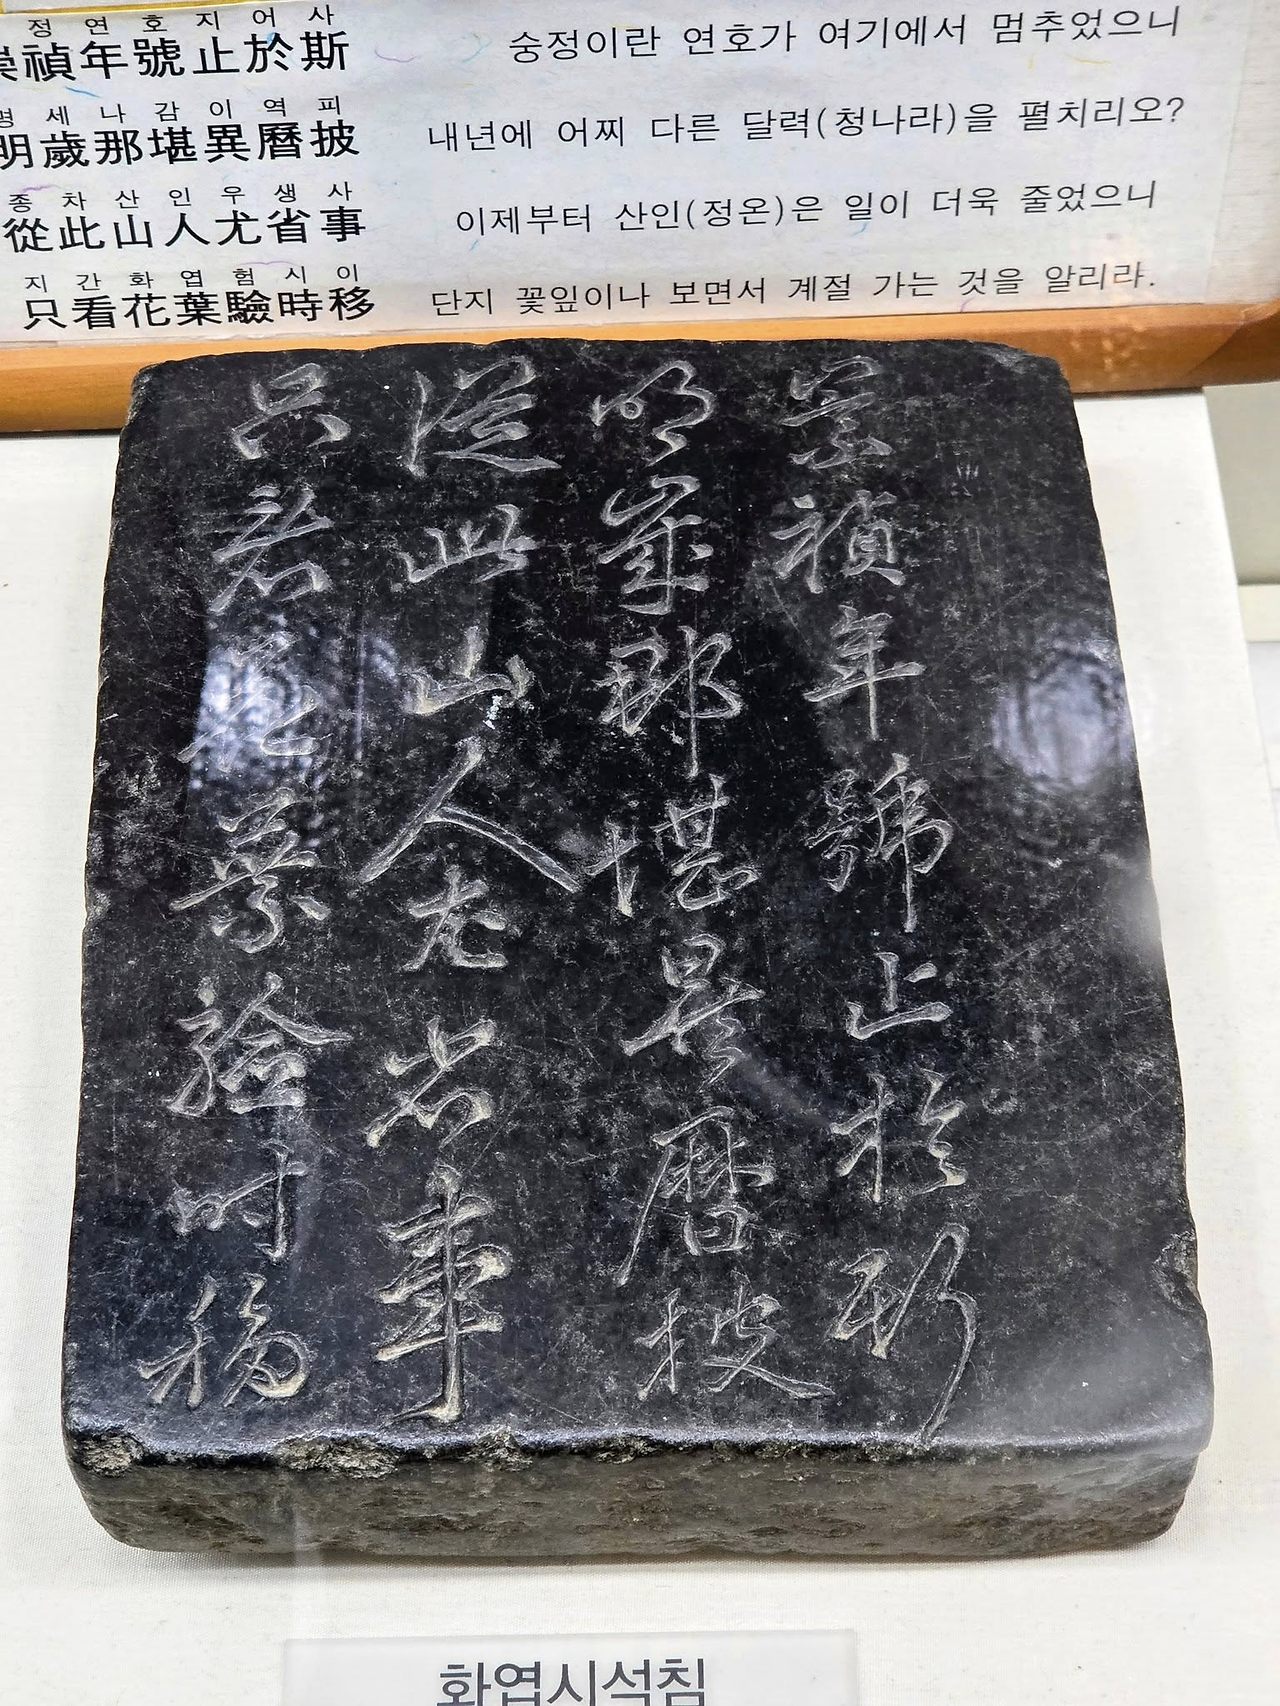 정 연 호 지 어 사
崇禎年號止於斯
숭정이란 연호가 여기에서 멈추었으니
명 세 나 감 이 역 피
明歲那堪異曆披
내년에 어찌 다른 달력(청나라)을 펼치리오?
종 차 산 인 우 생 사
從此山人尤省事
이제부터 산인(정온)은 일이 더욱 줄었으니
지 간 화 엽 험 시 이
只看花葉驗時移
단지 꽃잎이나 보면서 계절 가는 것을 알리라.
崇禎年號止於斯
明歲那堪異曆披
從此山人尤省事
只看花葉驗時移
화엽시석침